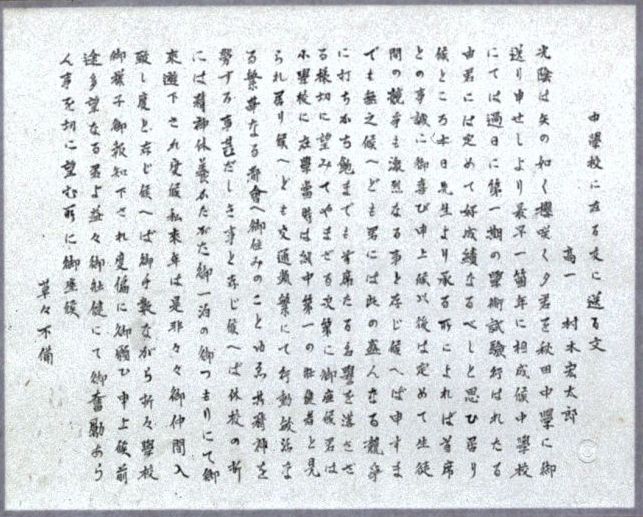 中學校に在る友に送る文
高一 村木宏太郎
光陰は矢の如く櫻咲く夕君を秋田中學に御
送り申せしより最早一箇年に相成候中學校
にては過日に第一期の學術試驗行はれたる
由君には定めて好成績なるべしと思ひ居り
候ところ本日先生より承る所によれば首席
との事誠に御喜び申上候以後は定めて生徒
間の競爭も激烈なる事と存じ候へば申すま
でも無之候へども君には此の盛んなる競爭
に打ちかち飽までも首席たる名譽を落さざ
る樣切に望みてやまざる次第に御座候君は
小學校に在學當時は級中第一の壯健者と見
られ居り候へども交通頻繁にて行動活潑な
る繁華なる都會へ御住みのことゆゑ精神を
勞する事甚だしき事と存じ候へば休校の折
には精神休養かたがた御一泊の御つもりにて御
來遊下され度候私來年は是非々々御仲間入
致し度と存じ候へば御手數ながら折々學校
御樣子御報知下され度偏に御願ひ申上候前
途多望なる君よ益々御壯健にて御奮勵あら
ん事を切に望む所に御座候
草々不備